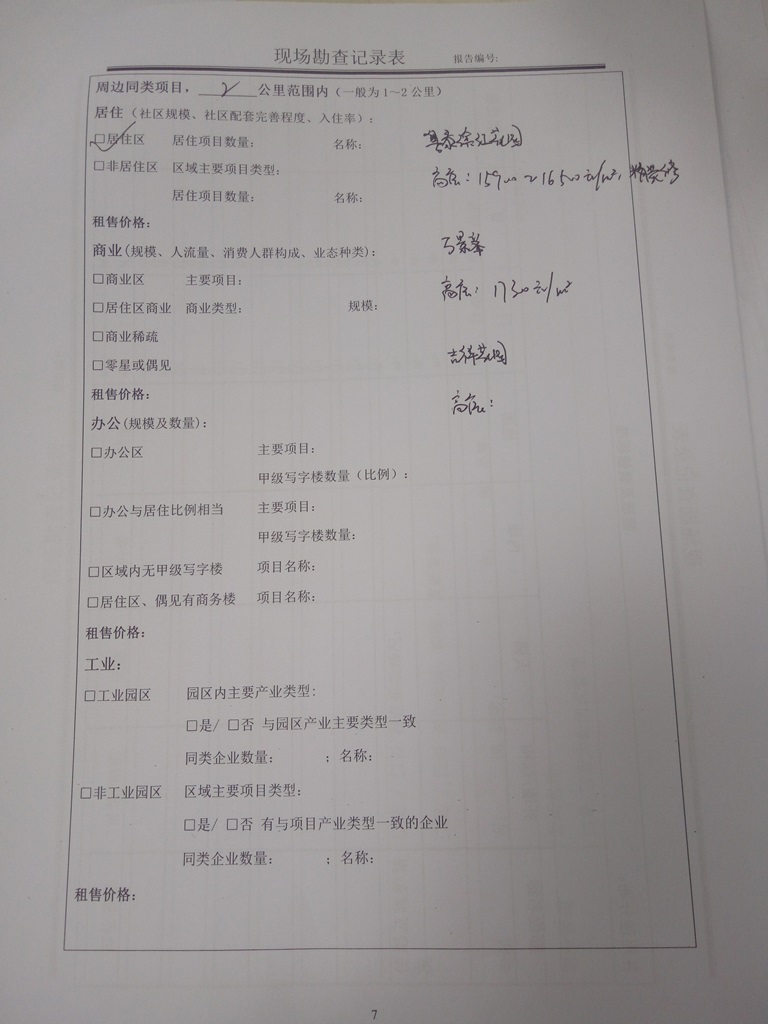 现场勘查记录表 报告编号:
周边同类项目，2公里范围内（一般为1～2公里）
居住（社区规模、社区配套完善程度、入住率）：
☑居住区 居住项目数量： 名称： 花园
□非居住区 区域主要项目类型： 高层：15900～16500元/m²，
居住项目数量： 名称：
租售价格：
商业(规模、人流量、消费人群构成、业态种类)：
□商业区 主要项目：
□居住区商业 商业类型： 规模： 高层：17500元/m²
□商业稀疏
□零星或偶见 吉祥花园
租售价格： 高层：
办公(规模及数量)：
□办公区 主要项目：
甲级写字楼数量（比例）：
□办公与居住比例相当 主要项目：
甲级写字楼数量：
□区域内无甲级写字楼 项目名称：
□居住区、偶见有商务楼 项目名称：
租售价格：
工业：
□工业园区 园区内主要产业类型:
□是/ □否 与园区产业主要类型一致
同类企业数量： ；名称：
□非工业园区 区域主要项目类型：
□是/ □否 有与项目产业类型一致的企业
同类企业数量： ；名称：
租售价格：
7